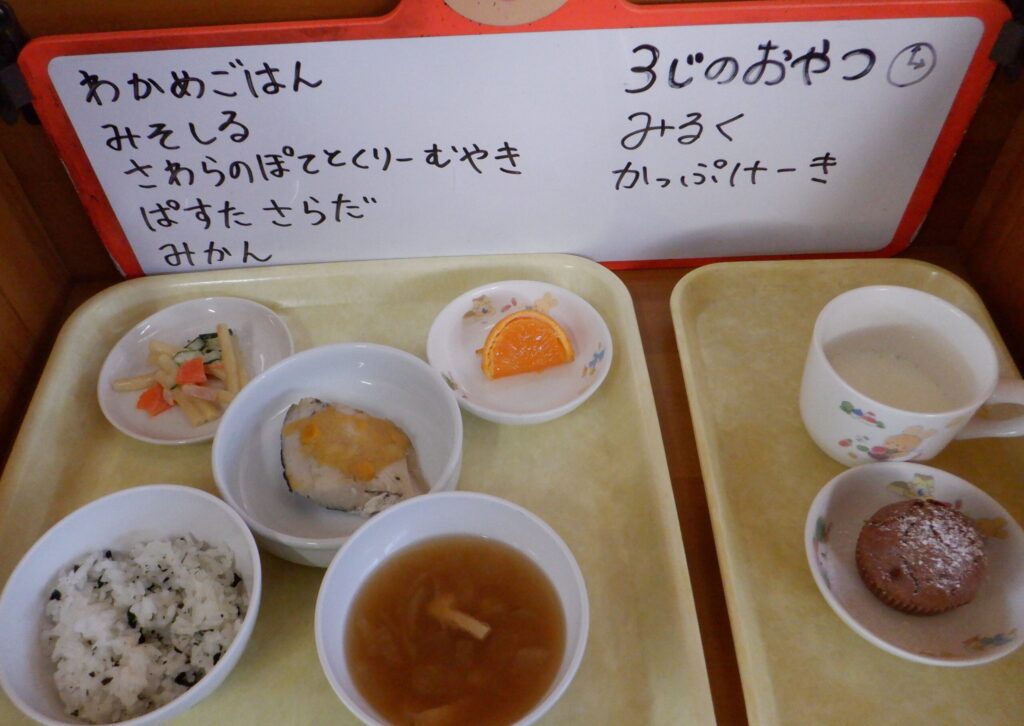 わかめごはん
みそしる
さわらのぽてとくりーむやき
ぱすたさらだ
みかん
3じのおやつ
みるく
かっぷけーき